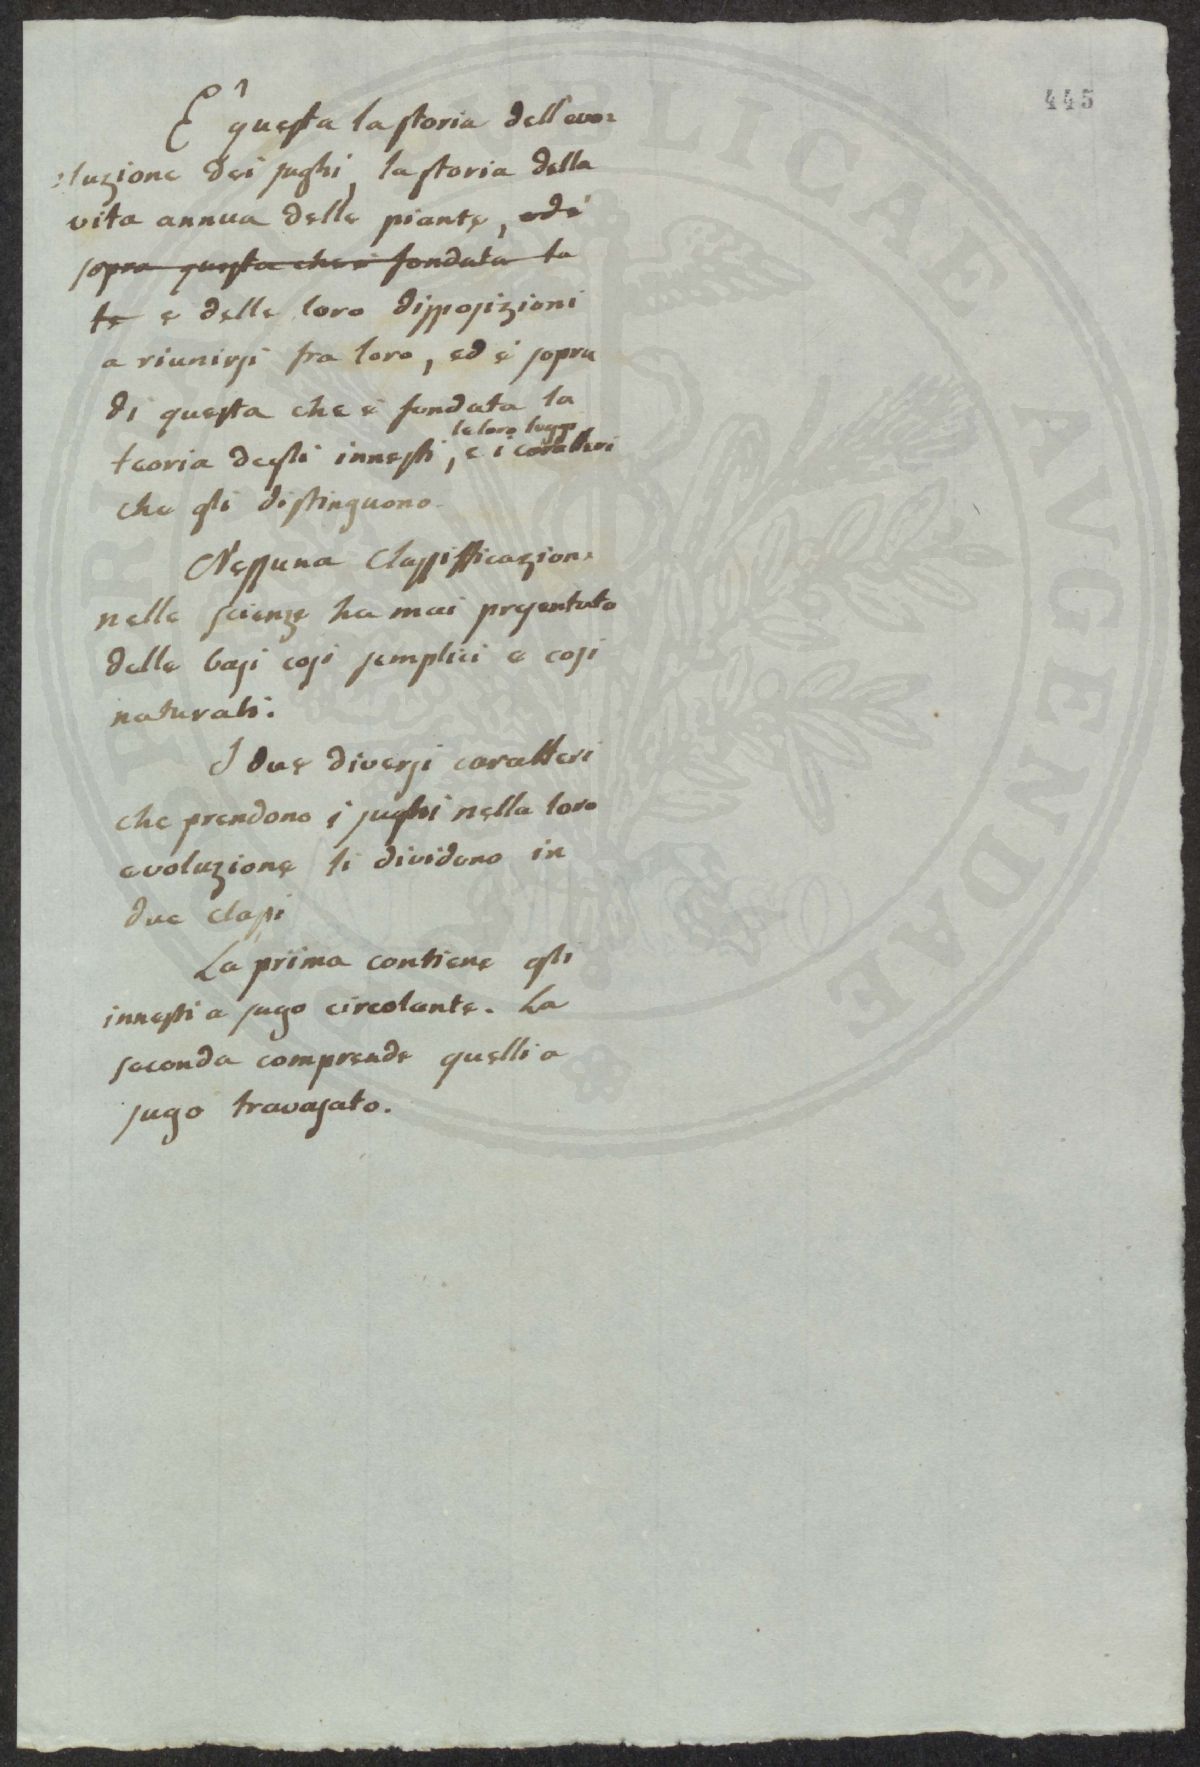 445
E' questa la storia dell'evo=
=luzione dei sughi, la storia della
vita annua delle piante, ed è
sopra questa che è fondata la
te e delle loro disposizioni
a riunirsi fra loro, ed è sopra
di questa che è fondata la
le loro leggi
teoria degli innesti, e i caratteri
che gli distinguono.
Nessuna Classifficazione
nelle scienze ha mai presentato
delle basi così semplici e così
naturali.
I due diversi caratteri
che prendono i sughi nella loro
evoluzione li dividono in
due classi
La prima contiene gli
innesti a sugo circolante. La
seconda comprende quelli a
sugo travasato.